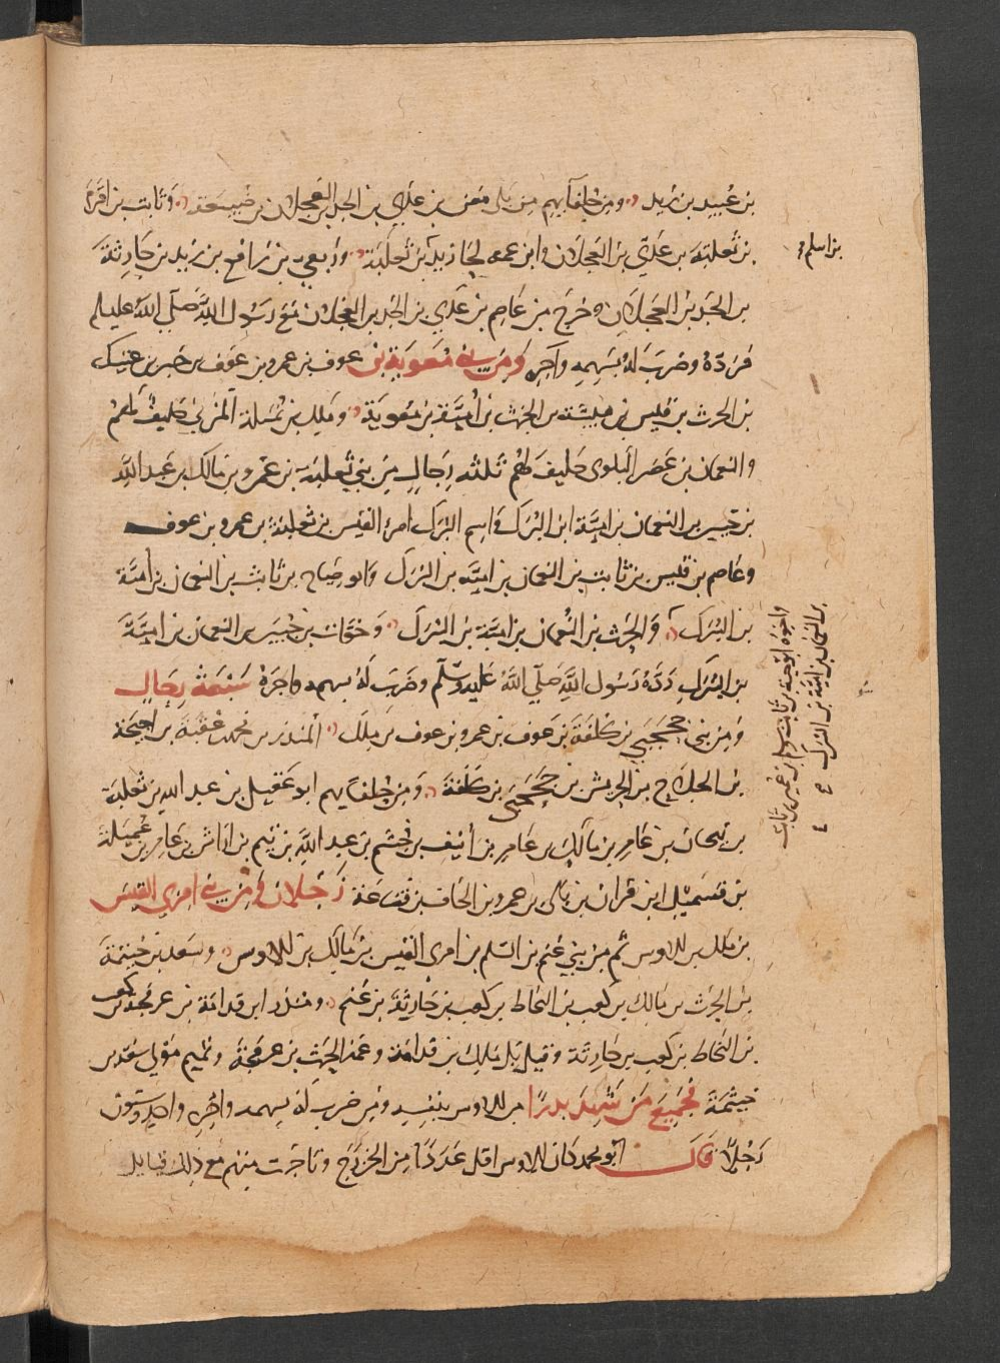 بن عبيد بن زيد ومن حلفآيهم من بلى معن بن عدي بن الجد بن العجلان بن ضبيعة وثابت بن اقرم
بن ثعلبة بن عدي بن العجلان وابن عمه لحا زيد بن ثعلبة وربعي بن رافع بن زيد بن حارثة
بن اسلم
بن الجد بن العجلان وخرج بن عاصم بن عدي بن الجد بن العجلان مع رسول الله صلى الله عليه
فرده وضرب له بسهمه واجره ومن بني معوية بن عوف بن عمرو بن عوف بن جبر بن عتيك
بن الحرث بن قيس بن هيشة بن الحرث بن أمية بن معوية وملك بن نميلة المزني حليف لهم
والنعمان بن عصر البلوى حليف لهم ثلثه رجال من بني ثعلبة بن عمرو بن مالك بن عبد الله
بن جبير بن النعمان بن امية ابن البرك واسم البرك امرؤ القيس بن ثعلبة بن عمرو بن عوف
وعاصم بن قيس بن ثابت بن النعمان بن امية بن البرك وابو ضياح بن ثابت بن النعمان بن أمية
بن البرك والحرث بن النعمان بن امية بن البرك وخوات بن جبير بن النعمان بن امية
بن البرك رده رسول الله صلى الله عليه وسلم وضرب له بسهمه واجره سبعة رجال
واخوه ابو حبة بن ثابت
بن النعمان بن امية بن البرك
ومن بني جحجبي بن كلفة بن عوف بن عمرو بن عوف بن ملك المنذر بن محمد بن عقبة بن احيحة
بن الجلاح بن الحريش بن جحجبى بن كلفة ومن حلفآيهم ابو عقيل بن عبد الله بن ثعلبة
بن بيحان بن عامر بن مالك بن عامر بن أنيف بن جشم بن عبد الله بن تيم بن اراش بن عامر بن عميلة
بن قسميل ابن فران بن بلى بن عمرو بن الحاف بن قضاعة رجلان ومن بني امرى القيس
بن ملك بن الاوس ثم من بني غنم بن السلم بن امرى القيس بن مالك بن الاوس وسعد بن خيثمة
بن الحرث بن مالك بن كعب بن النحاط بن كعب بن حارثة بن غنم ومنذر ابن قدامة بن عرفجة بن كعب
بن النحاط بن كعب بن حارثة وقيل بل ملك بن قدامة وعند الحرث بن عرفجة وتميم مولى سعد بن
خيثمة فجميع من شهد بدرا من الاوس بنفسه ومن ضرب له بسهمه واجره واحد وستون
رجلا قال ابو محمد كان الاوس اقل عددا من الخزرج وتاخرت منهم مع ذلك قبايل